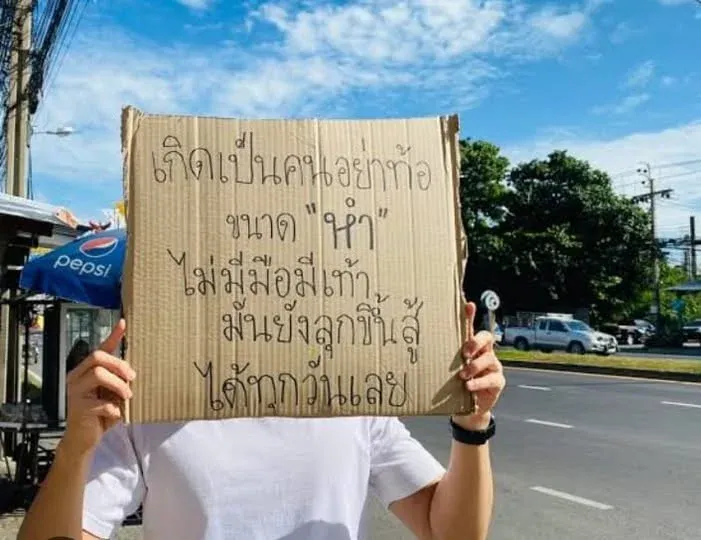 เกิดเป็นคนอย่าท้อ
ขนาด "หำ"
ไม่มีมือมีเท้า
มันยังลุกขึ้นสู้
ได้ทุกวันเลย
pepsi